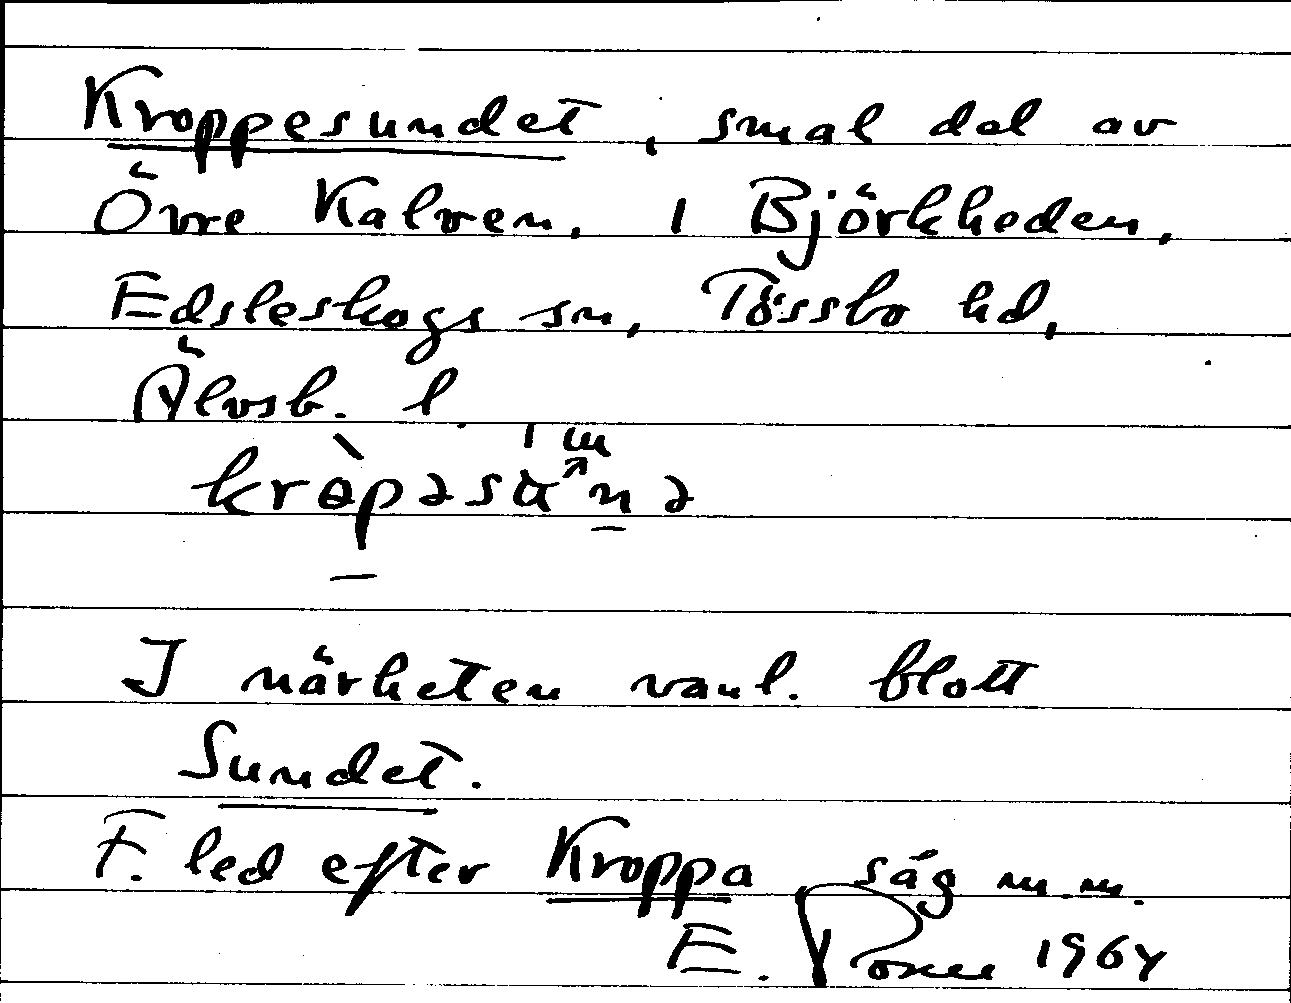 Kroppesundet, smal del av
Övre Kalven, i Björkheden,
Edsleskogs sn, Tössbo hd,
Älvsb. l.
I närheten vanl. blott
Sundet.
F. led efter Kroppa, såg m.m.
E. 1964